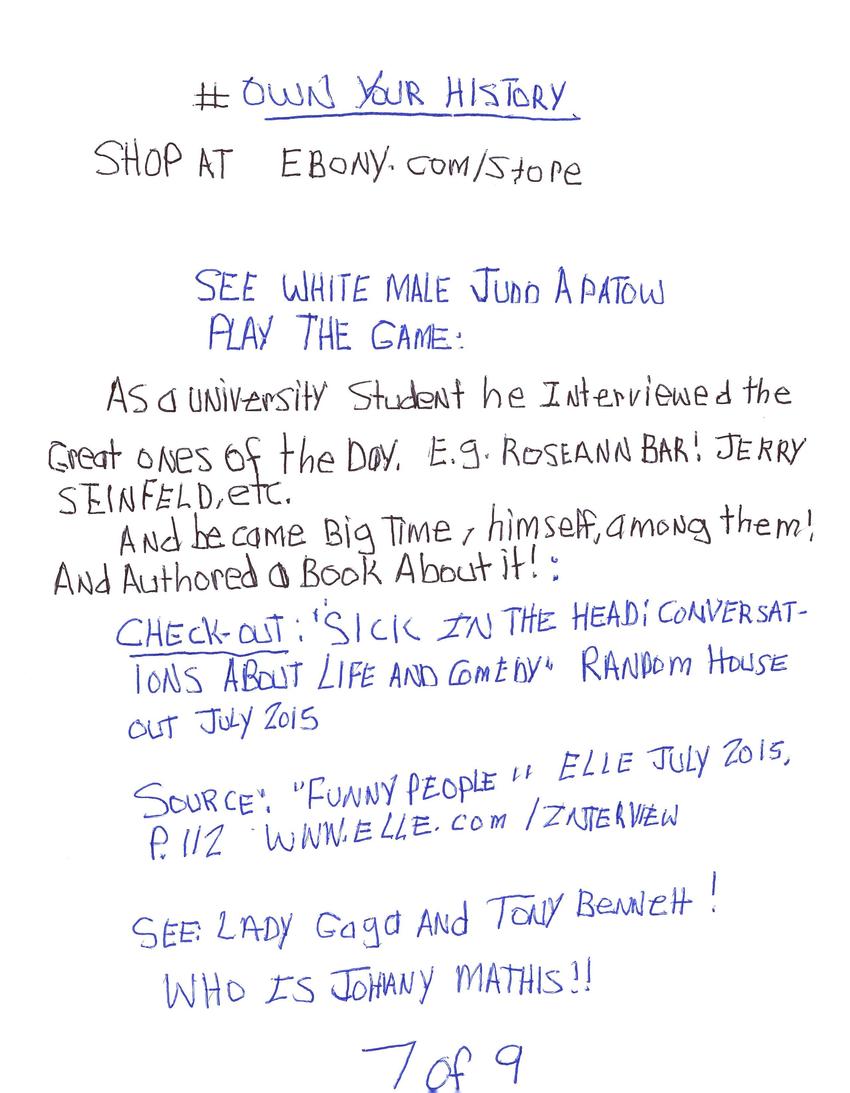 # OWN YOUR HISTORY
SHOP AT EBONY.com/Store
SEE WHITE MALE JUDD APATOW
PLAY THE GAME:
AS a UNIVersity Student he Interviewed the
Great ones of the Day. E.g. ROSEANN BAR! JERRY
SEINFELD, etc.
And became Big Time, himself, among them!
And Authored a Book About it! :
CHECK-OUT: "SICK IN THE HEAD: CONVERSAT-
IONS ABOUT LIFE AND COMEDY" RANDOM HOUSE
OUT JULY 2015
SOURCE: "FUNNY PEOPLE" ELLE JULY 2015,
P. 112 WWW.ELLE.com/INTERVIEW
SEE: LADY Gaga AND TONY Bennett!
WHO IS JOHNNY MATHIS!!
7 of 9